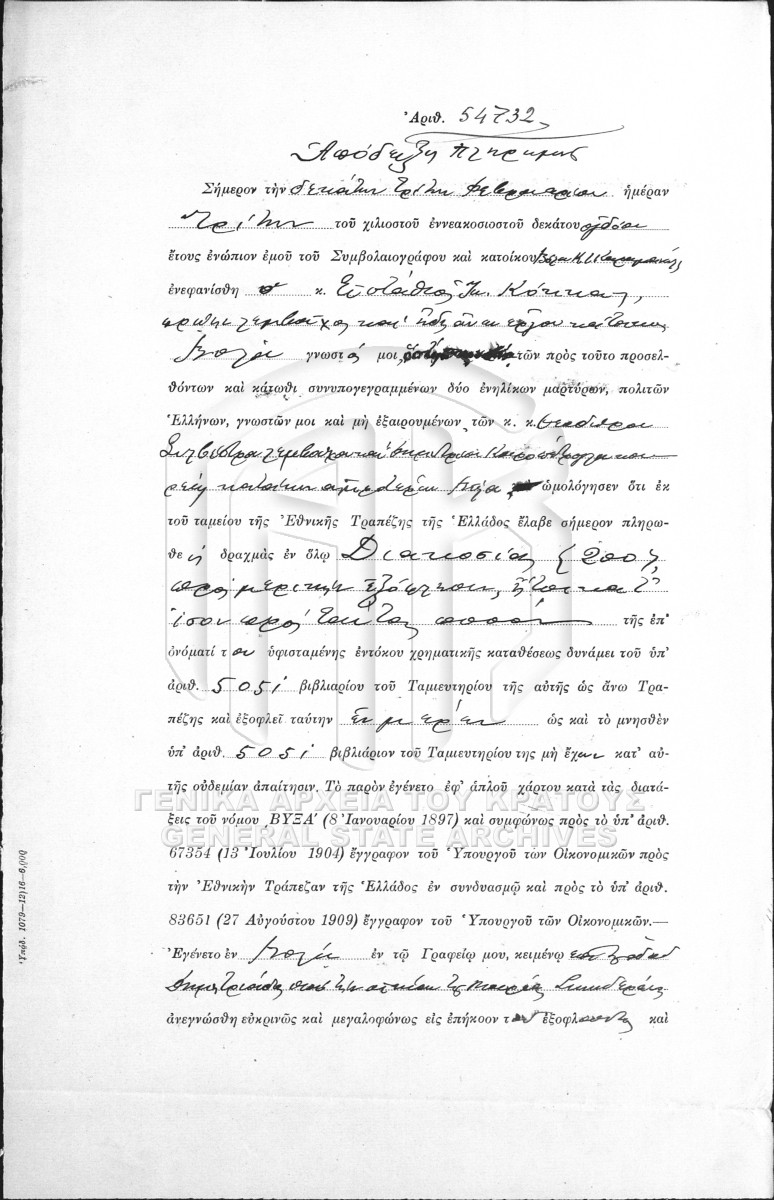 Ἀριθ. 54732
Ἀπόδειξις Πληρωμῆς
Σήμερον τὴν δεκάτην τρίτην Φεβρουαρίου ἡμέραν
Τρίτην τοῦ χιλιοστοῦ ἐννεακοσιοστοῦ δεκάτου ὀγδόου
ἔτους ἐνώπιον ἐμοῦ τοῦ Συμβολαιογράφου καὶ κατοίκου
ἐνεφανίσθη ὁ κ. Εὐστάθιος Κόκκας,
πρώην καὶ ἤδη ἄνευ ἔργου κάτοικος
Βόλου γνωστός μοι, τῶν πρὸς τοῦτο προσελ-
θόντων καὶ κάτωθι συνυπογεγραμμένων δύο ἐνηλίκων μαρτύρων, πολιτῶν
Ἑλλήνων, γνωστῶν μοι καὶ μὴ ἐξαιρουμένων τῶν κ. κ. Θεοδώρου
καὶ Δημητρίου
κατοίκων Βόλου ὡμολόγησεν ὅτι ἐκ
τοῦ ταμείου τῆς Ἐθνικῆς Τραπέζης τῆς Ἑλλάδος ἔλαβε σήμερον πληρω-
θεὶς δραχμὰς ἐν ὅλῳ Διακοσίας (200),
πρὸς μερικὴν ἐξόφλησιν, ἤτοι κατ'
ἴσον πρὸς ταύτας ποσὸν τῆς ἐπ'
ὀνόματί του ὑφισταμένης ἐντόκου χρηματικῆς καταθέσεως δυνάμει τοῦ ὑπ'
ἀριθ. 5051 βιβλιαρίου τοῦ Ταμιευτηρίου τῆς αὐτῆς ὡς ἄνω Τρα-
πέζης καὶ ἐξοφλεῖ ταύτην ἐν μέρει ὡς καὶ τὸ μνησθὲν
ὑπ' ἀριθ. 5051 βιβλιάριον τοῦ Ταμιευτηρίου της μὴ ἔχων κατ' αὐ-
τῆς οὐδεμίαν ἀπαίτησιν. Τὸ παρὸν ἐγένετο ἐφ' ἁπλοῦ χάρτου κατὰ τὰς διατά-
ξεις τοῦ νόμου ͵ΒΥΞΑ' (8 Ἰανουαρίου 1897) καὶ συμφώνως πρὸς τὸ ὑπ' ἀριθ.
67354 (13 Ἰουλίου 1904) ἔγγραφον τοῦ Ὑπουργοῦ τῶν Οἰκονομικῶν πρὸς
τὴν Ἐθνικὴν Τράπεζαν τῆς Ἑλλάδος ἐν συνδυασμῷ καὶ πρὸς τὸ ὑπ' ἀριθ.
83651 (27 Αὐγούστου 1909) ἔγγραφον τοῦ Ὑπουργοῦ τῶν Οἰκονομικῶν.—
Ἐγένετο ἐν Βόλῳ ἐν τῷ Γραφείῳ μου, κειμένῳ ἐπὶ τῆς ὁδοῦ
Δημητριάδος ὑπὸ τὴν οἰκίαν
ἀνεγνώσθη εὐκρινῶς καὶ μεγαλοφώνως εἰς ἐπήκοον τοῦ ἐξοφλοῦντος καὶ
ΓΕΝΙΚΑ ΑΡΧΕΙΑ ΤΟΥ ΚΡΑΤΟΥΣ
GENERAL STATE ARCHIVES